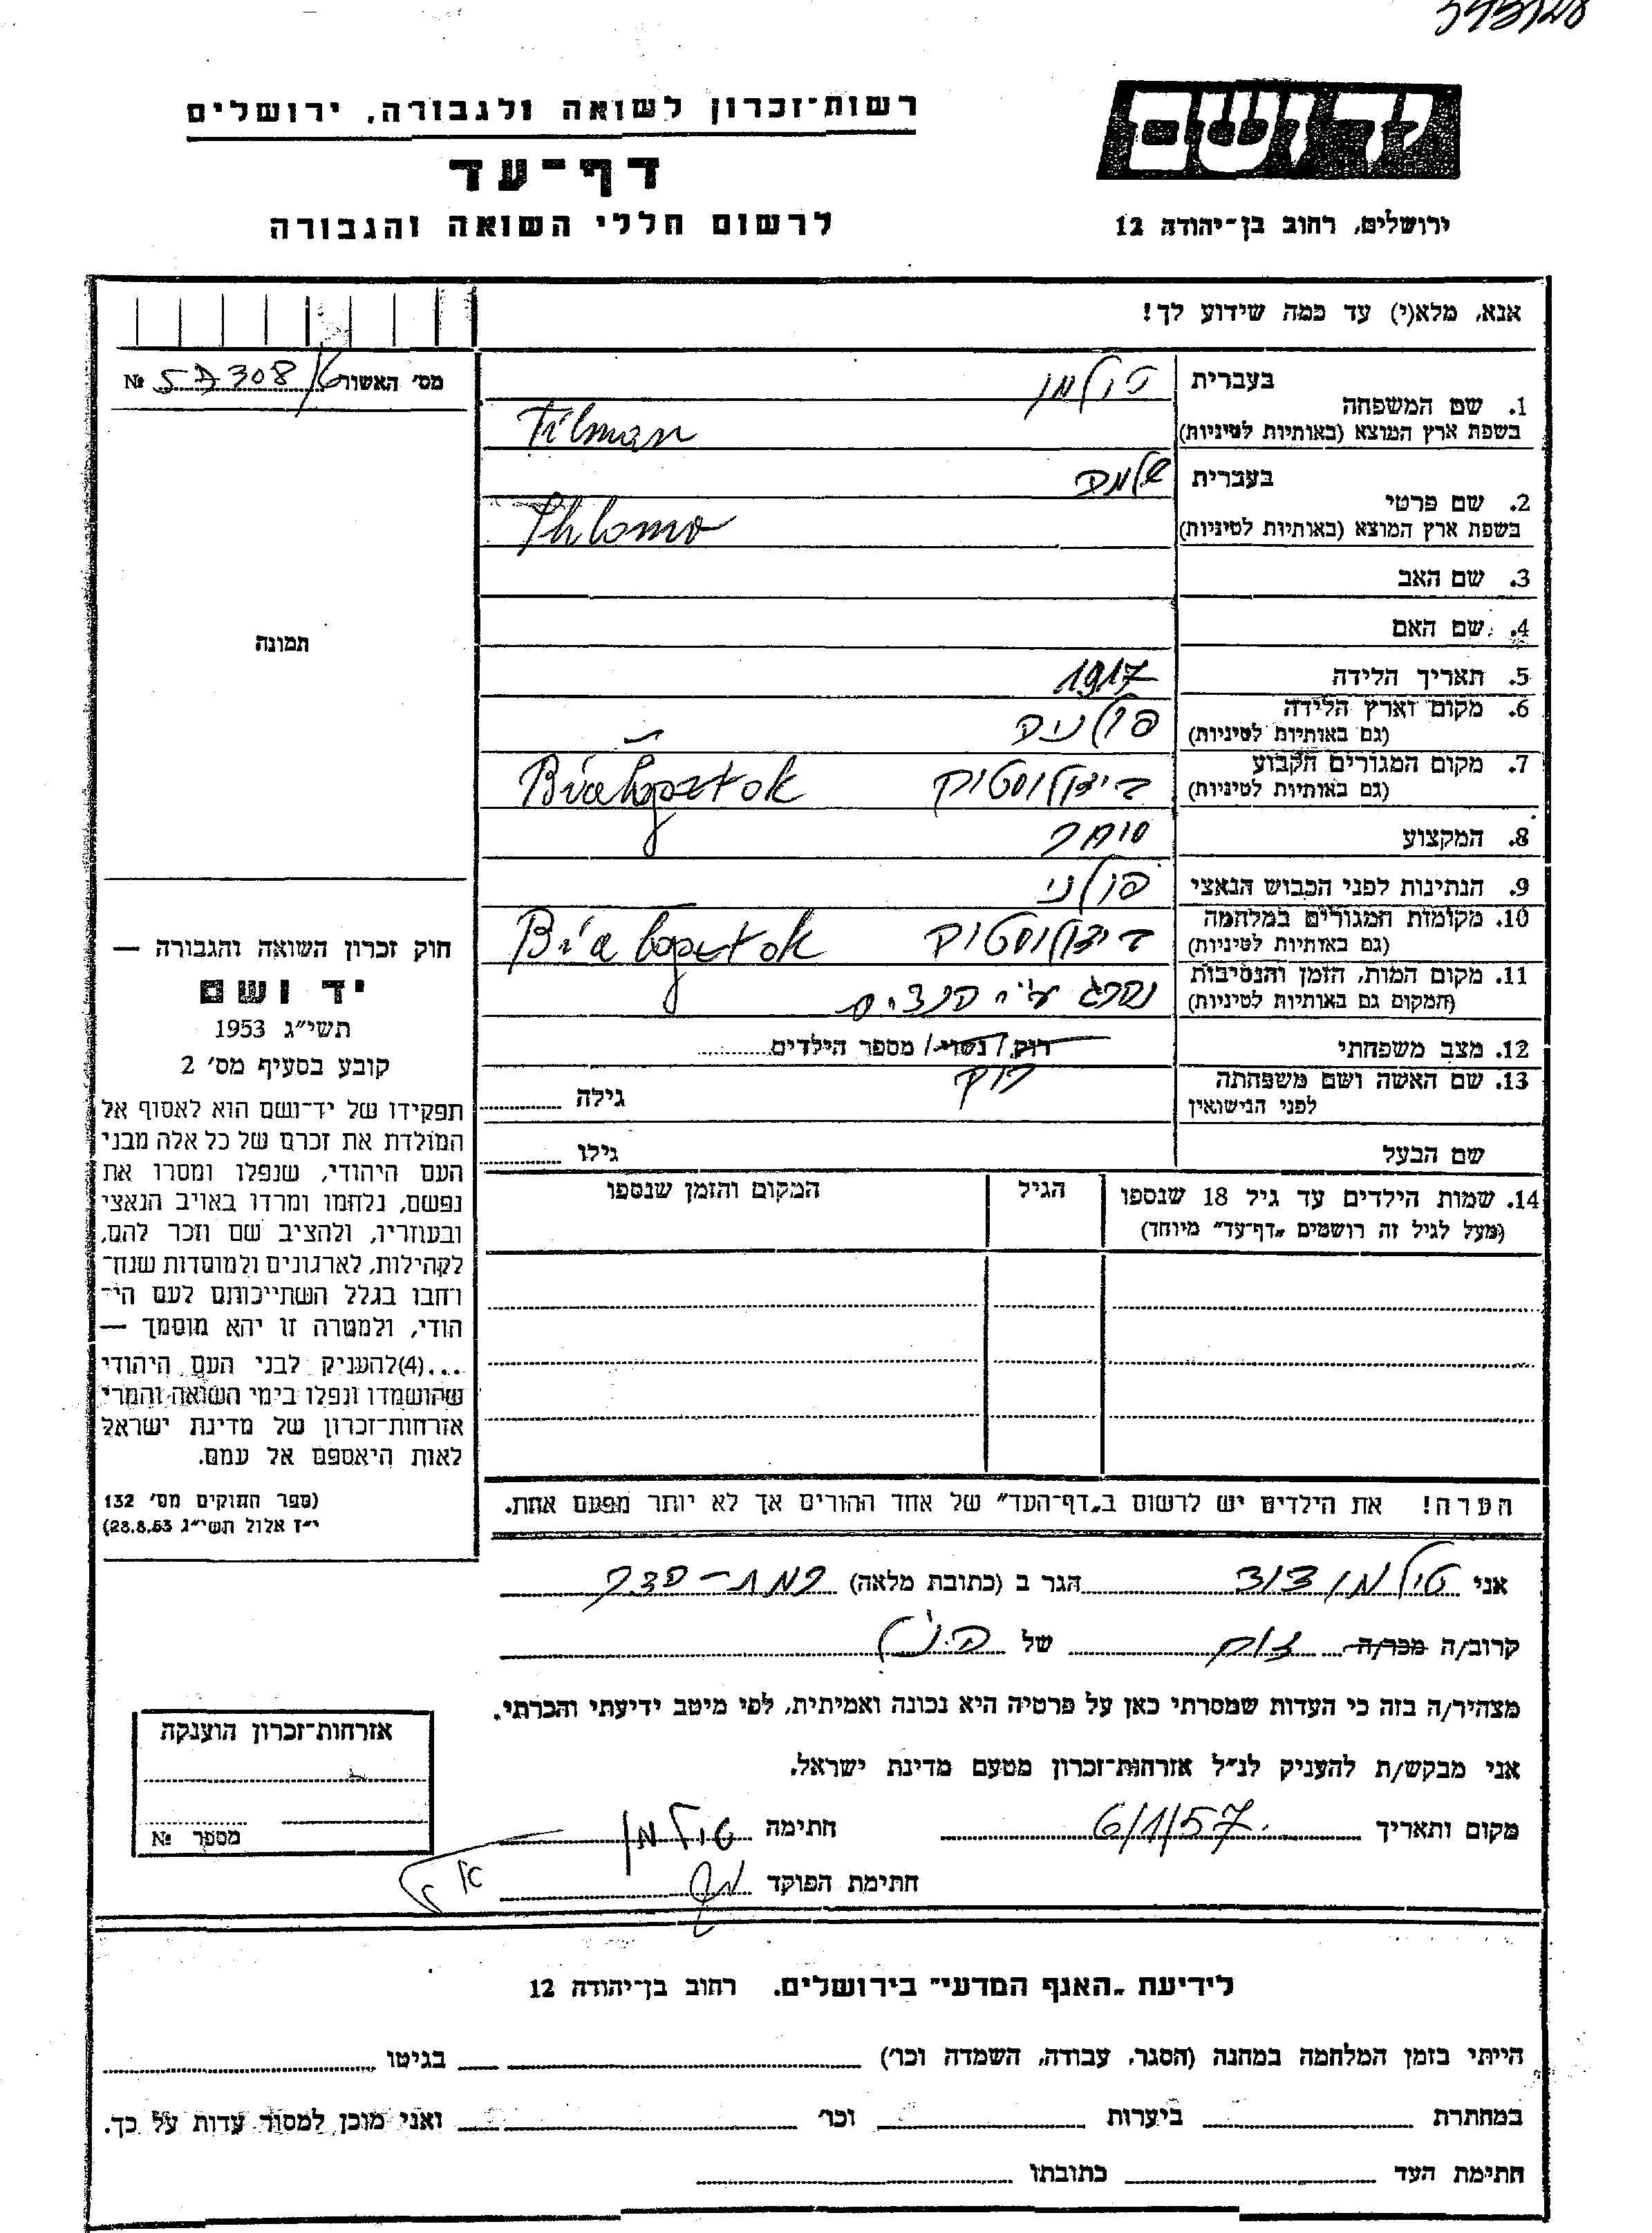 רשות־זכרון לשואה ולגבורה, ירושלים
יד ושם
דף־עד
לרשום חללי השואה והגבורה
ירושלים, רחוב בן־יהודה 12
אנא, מלא(י) עד כמה שידוע לך!
מס׳ האשור № 308
בעברית טילמן
1. שם המשפחה
בשפת ארץ המוצא (באותיות לטיניות) Tilman
בעברית שלמה
2. שם פרטי
בשפת ארץ המוצא (באותיות לטיניות) Shlomo
3. שם האב
4. שם האם
5. תאריך הלידה 1917
6. מקום וארץ הלידה
(גם באותיות לטיניות) פולניה
7. מקום המגורים הקבוע
(גם באותיות לטיניות) ביאלוסטוק Białopztok
8. המקצוע סוחר
9. הנתינות לפני הכבוש הנאצי פולני
10. מקומות המגורים במלחמה
(גם באותיות לטיניות) ביאלוסטוק Białopztok
11. מקום המות, הזמן והנסיבות
(המקום גם באותיות לטיניות) נהרג ע״י הנצים
12. מצב משפחתי רוק/ נשוי/ מספר הילדים
רוק
13. שם האשה ושם משפחתה
לפני הנישואין גילה
שם הבעל גילו
14. שמות הילדים עד גיל 18 שנספו
(מעל לגיל זה רושמים „דף־עד״ מיוחד)
הגיל
המקום והזמן שנספו
הערה! את הילדים יש לרשום ב„דף־העד״ של אחד ההורים אך לא יותר מפעם אחת.
תמונה
חוק זכרון השואה והגבורה —
יד ושם
תשי״ג 1953
קובע בסעיף מס׳ 2
תפקידו של יד־ושם הוא לאסוף אל
המולדת את זכרם של כל אלה מבני
העם היהודי, שנפלו ומסרו את
נפשם, נלחמו ומרדו באויב הנאצי
ובעוזריו, ולהציב שם וזכר להם,
לקהילות, לארגונים ולמוסדות שנח־
רחבו בגלל השתייכותם לעם הי־
הודי, ולמטרה זו יהא מוסמך —
...(4)להעניק לבני העם היהודי
שהושמדו ונפלו בימי השואה והמרי
אזרחות־זכרון של מדינת ישראל
לאות היאספם אל עמם.
(ספר החוקים מס׳ 132
י״ז אלול תשי״ג 28.8.53)
אני טילמן דוד הגר ב (כתובת מלאה) רמת-הדר
קרוב/ה מכר/ה דוד של הנ״ל
מצהיר/ה בזה כי העדות שמסרתי כאן על פרטיה היא נכונה ואמיתית, לפי מיטב ידיעתי והכרתי.
אני מבקש/ת להעניק לנ״ל אזרחות־זכרון מטעם מדינת ישראל.
מקום ותאריך 6/1/57 חתימה טילמן
חתימת הפוקד
אזרחות־זכרון הוענקה
מספר №
לידיעת „האנף המדעי״ בירושלים. רחוב בן־יהודה 12
הייתי בזמן המלחמה במחנה (הסגר, עבודה, השמדה וכו׳) בגיטו
במחתרת ביערות וכו׳ ואני מוכן למסור עדות על כך.
חתימת העד כתובתו